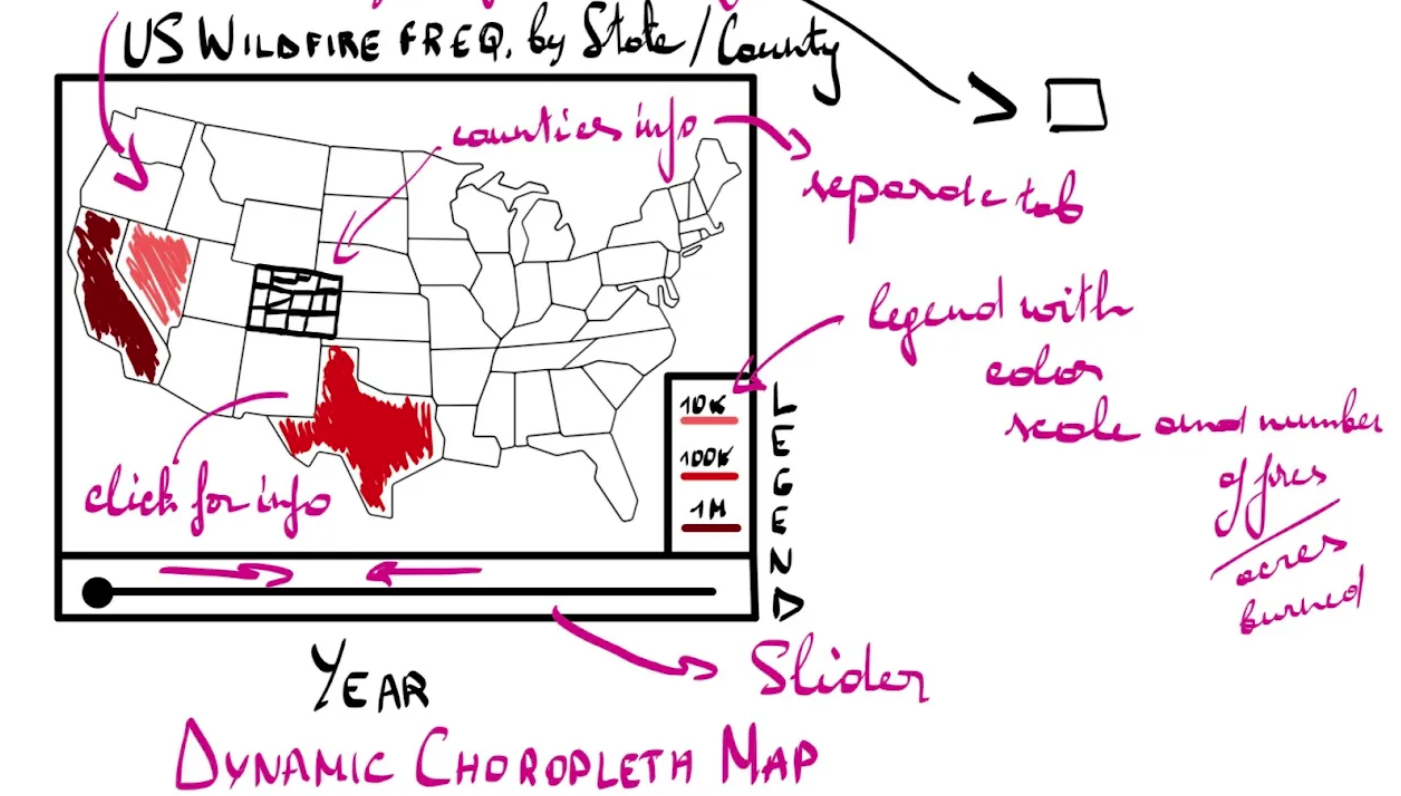 US WILDFIRE FREQ. by State/County
counties info
separate tab
legend with
color
scale and number
of fires
acres
burned
10K
100K
1M
LEGEND
click for info
YEAR
Slider
DYNAMIC CHOROPLETH MAP